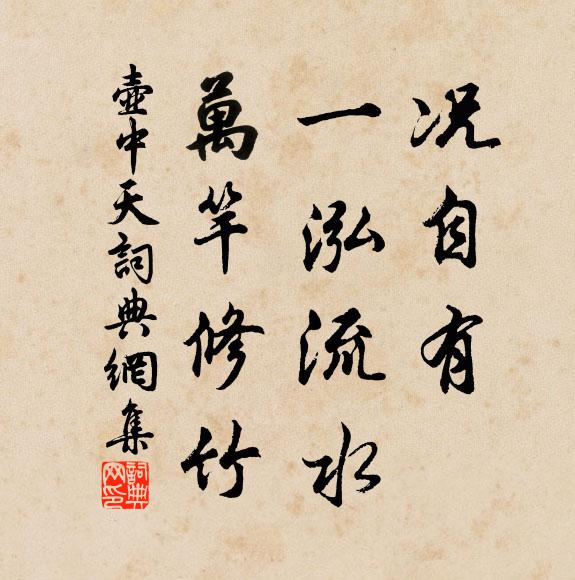 况自有
一泓流水
萬竿修竹
壺中天詞典網集
詞典
网印